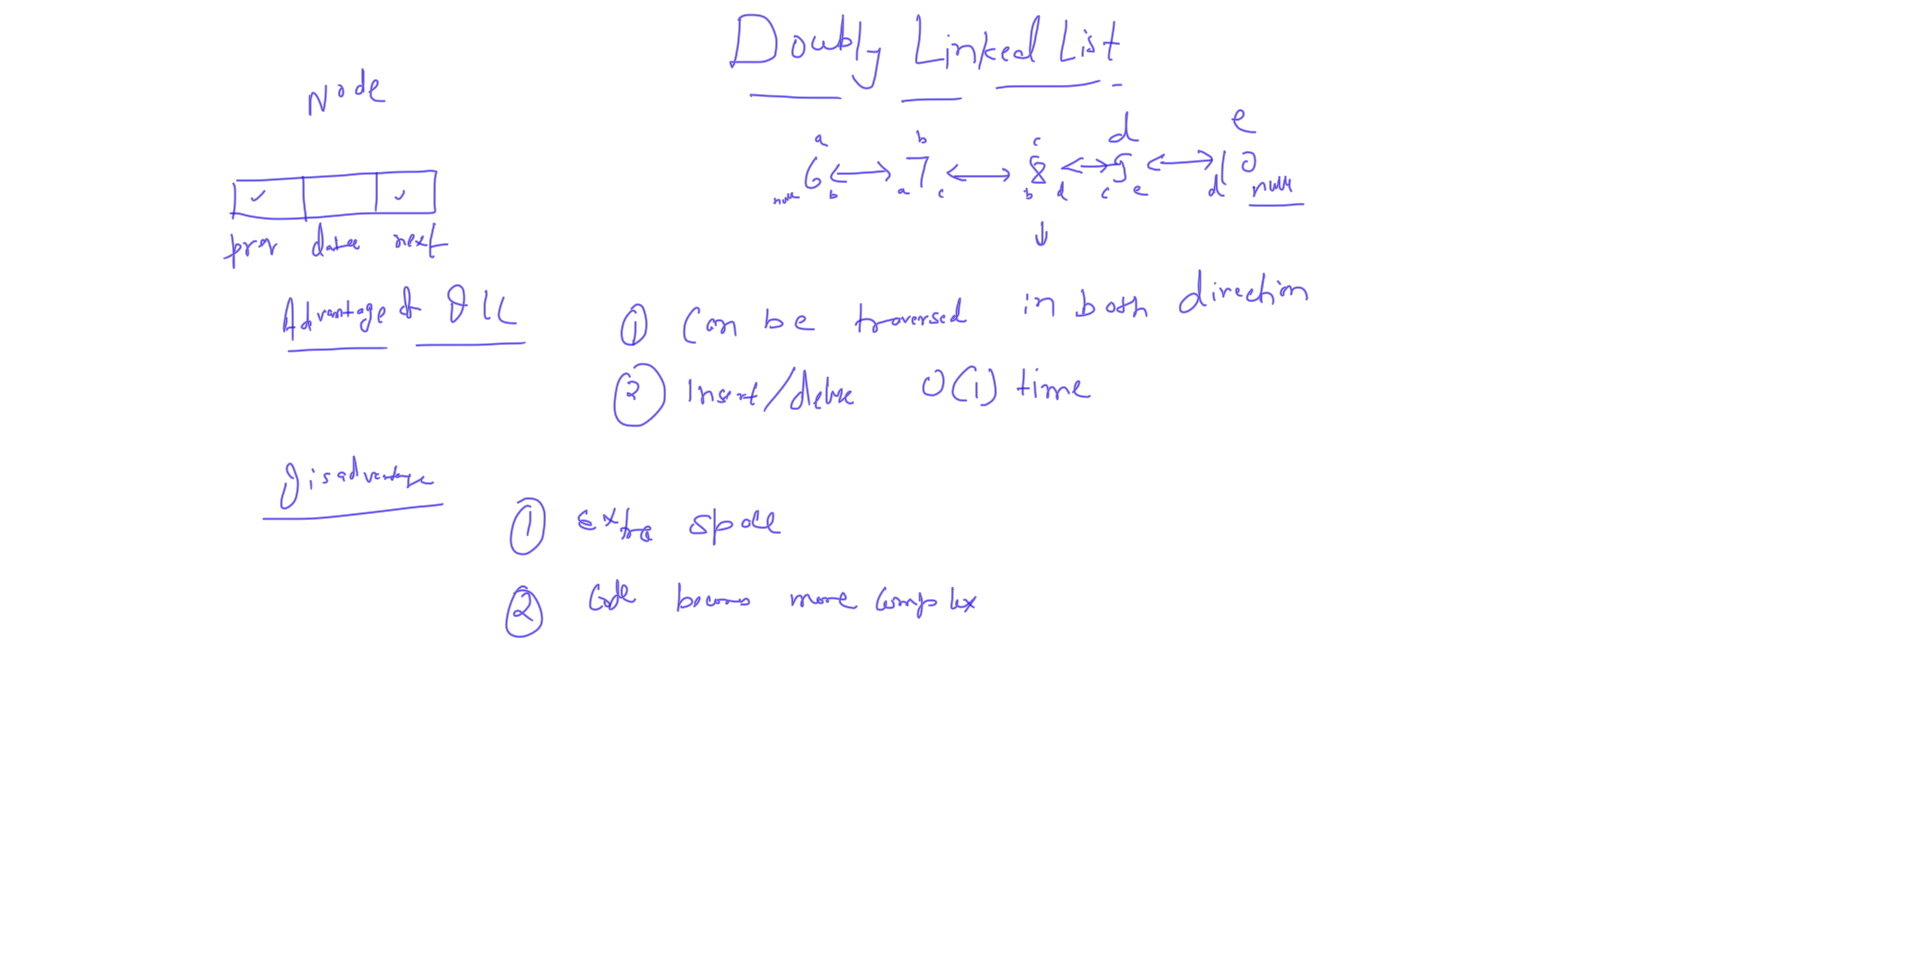 Doubly Linked List
Node
a b c d e
6 7 8 5 10
null b a c b d c e d null
prev data next
Advantage of DLL
① Can be traversed in both direction
② Insert/delete O(1) time
Disadvantage
① extra space
② Code becomes more complex